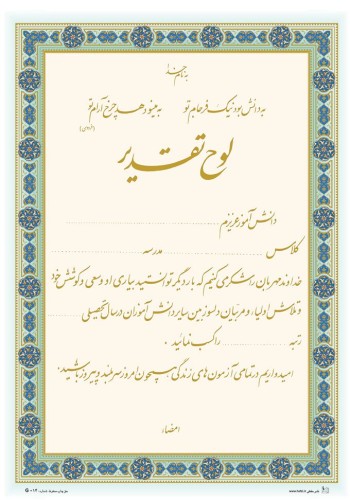 به نام خدا
به دانش بود نیک فرجام تو    به مینو دهد چرخ آرام تو
(فردوسی)
لوح تقدیر
دانش آموز عزیزم
کلاس مدرسه
خداوند مهربان را شکر می کنیم که بار دیگر توانستید بیاری او و سعی و کوشش خود
و تلاش اولیاء و مربیان دلسوز بین سایر دانش آموزان در سال تحصیلی
رتبه را کسب نمائید .
امیدواریم در تمامی آزمون های زندگی همچون امروز سربلند و پیروز باشید .
امضاء